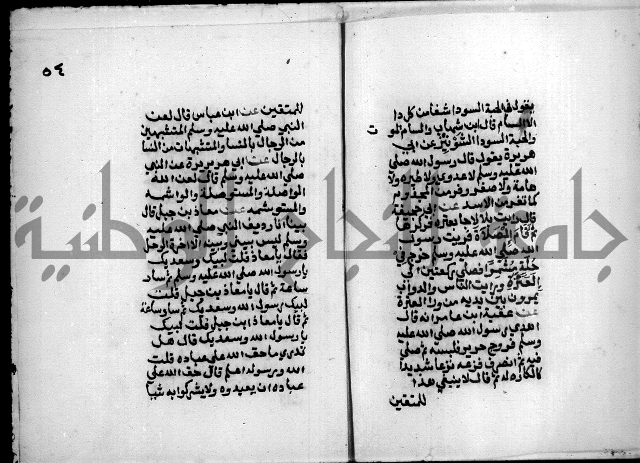 يقول في الحبة السوداء شفا من كل دا
الا السام قال ابن شهاب والسام الموت
والحبة السودا الشونيز عن ابي
هريرة يقول قال رسول الله صلي
الله عليه وسلم لا عدوي ولا طيرة ولا
هامة ولا صفر وفر من المجذوم
كما تفر من الاسد عن ابي جحيفة
قال رايت بلالا جا بعنزة فركزها
ثم قام الصلاة فرايت رسول
الله صلي الله عليه وسلم خرج في
حلة مشمرا فصلي ركعتين الي
العنزة ورايت الناس والدواب
يمرون بين يديه من ورا العنزة
عن عقبة ابن عامر انه قال
اهدي لرسول الله صلي الله عليه
وسلم فروج حرير فلبسه ثم صلي
فيه ثم انصرف فنزعه نزعا شديدا
كالكاره له ثم قال لا ينبغي هذا
للمتقين
٥٤
للمتقين عن ابن عباس قال لعن
النبي صلي الله عليه وسلم المتشبهين
من الرجال بالنسا والمتشبهات من النسا
بالرجال عن ابي هريرة عن النبي
صلي الله عليه وسلم قال لعن الله
الواصلة والمستوصلة والواشمة
والمستوشمة عن معاذ بن جبل قال
بينا انا رديف النبي صلي الله عليه
وسلم ليس بيني وبينه الا اخرة الرحل
فقال يا معاذ قلت لبيك وسعديك
يا رسول الله صلي الله عليه وسلم ثم سار
ساعة ثم قال يا معاذ بن جبل قلت
لبيك رسول الله وسعديك ثم سار ساعة
ثم قال يا معاذ ابن جبل قلت لبيك
يا رسول الله وسعديك قال هل
تدري ما حق الله علي عباده قلت
الله ورسوله اعلم قال حق الله علي
عباده ان يعبدوه ولا يشركوا به شيا
جامعة النجاح الوطنية